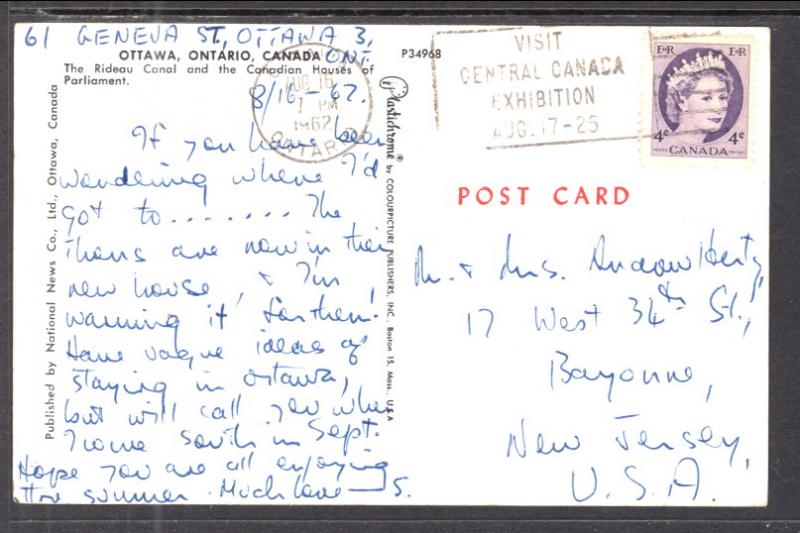 61 GENEVA ST, OTTAWA 3,
ONT.
OTTAWA, ONTARIO, CANADA
The Rideau Canal and the Canadian Houses of
Parliament.
P34968
8/16-62.
If you have been
wondering where I'd
got to........ The
are now in their
new house, & I'm
warming it for them.
Have vague ideas of
staying in Ottawa,
but will call you when
I come south in Sept.
Hope you are all enjoying
the summer. Much love — S.
Published by National News Co., Ltd., Ottawa, Canada
Plastichrome® by COLOURPICTURE PUBLISHERS, INC., Boston 15, Mass., U.S.A.
AUG 16
7 PM
1962
ONTARIO
VISIT
CENTRAL CANADA
EXHIBITION
AUG. 17-25
EIIR EIIR
4¢ 4¢
POSTES CANADA POSTAGE
POST CARD
Mr. & Mrs. Andrew
17 West 34th St.,
Bayonne,
New Jersey,
U.S.A.